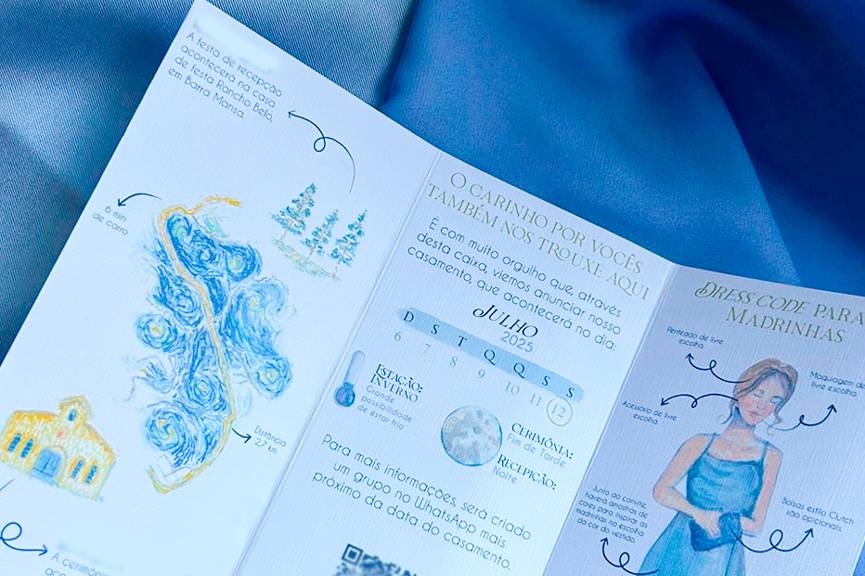 A festa de recepção
acontecerá na casa
de festa Rancho Bela,
em Barra Mansa.
6 min
de carro
Distância
2,7 km
A cerimôn
O carinho por vocês
também nos trouxe aqui
É com muito orgulho que, através
desta caixa, viemos anunciar nosso
casamento, que acontecerá no dia:
Julho
2025
D S T Q Q S S
6 7 8 9 10 11 12
Estação:
Inverno
Grande
possibilidade
de estar frio
Cerimônia:
Fim de Tarde
Recepição:
Noite
Para mais informações, será criado
um grupo no WhatsApp mais
próximo da data do casamento.
Dress code para
Madrinhas
Penteado de livre
escolha.
Maquiagem de
livre escolha.
Acessório de livre
escolha.
Junto ao convite,
haverá amostras de
cores para inspirar as
madrinhas na escolha
da cor do vestido.
Bolsas estilo Clutch
são opicionais.